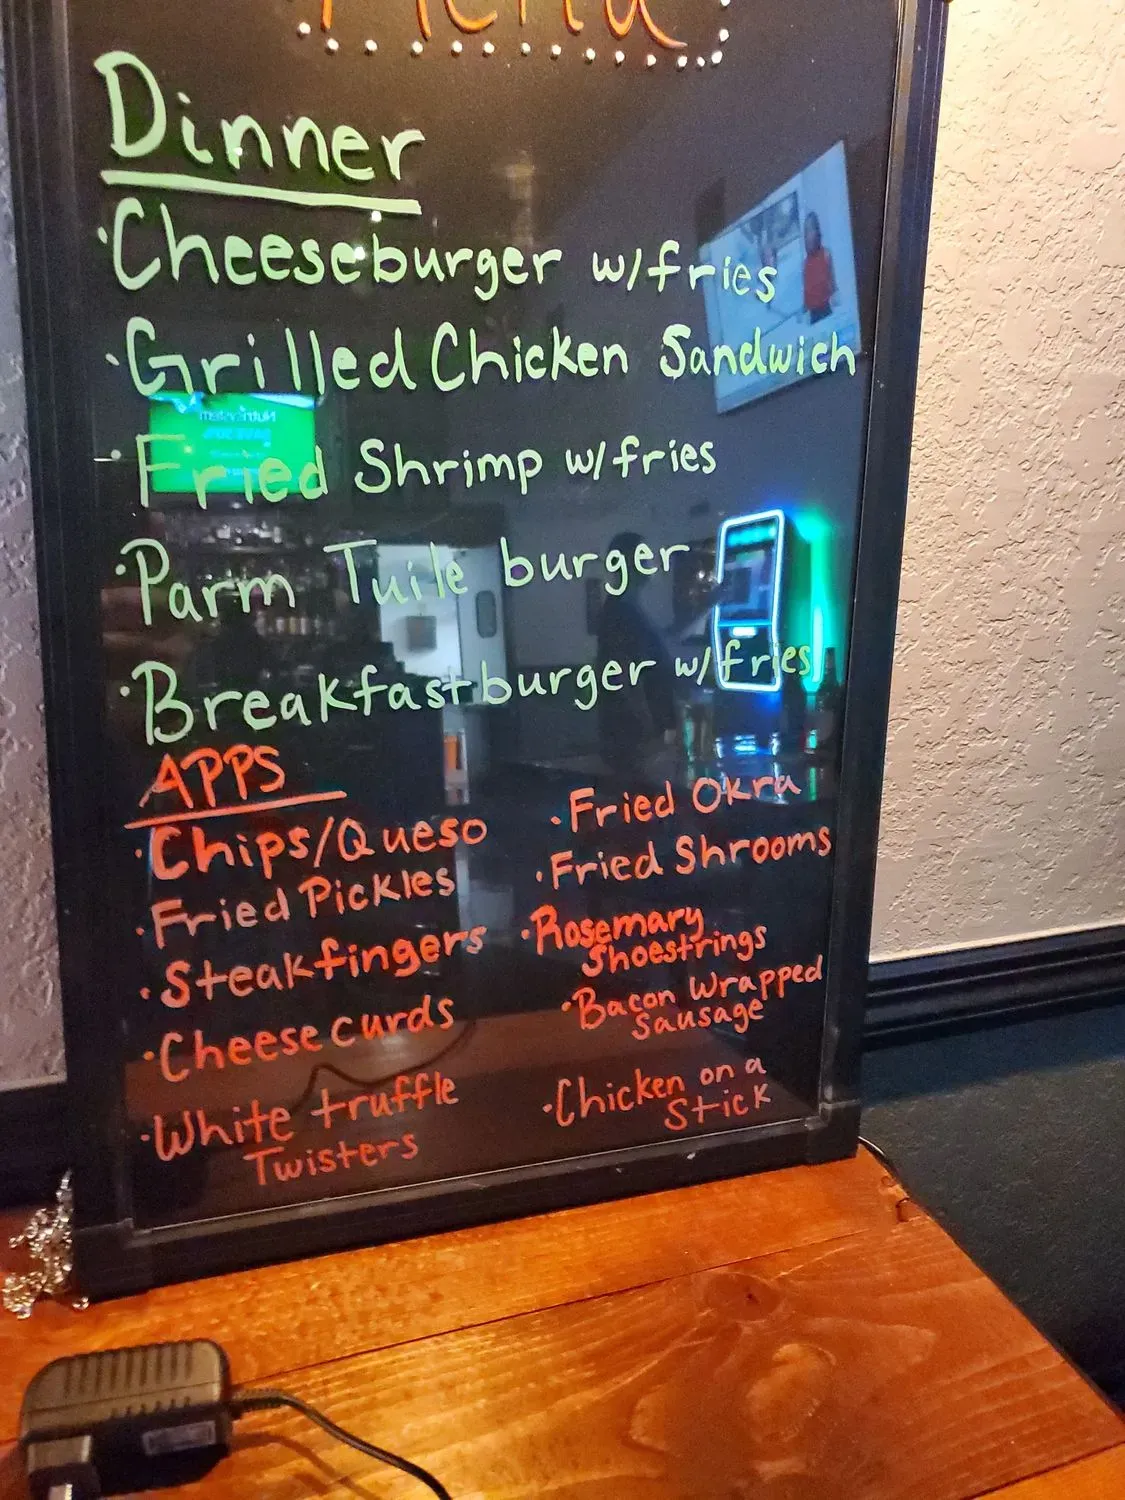 Menu
Dinner
·Cheeseburger w/fries
·Grilled Chicken Sandwich
·Fried Shrimp w/fries
·Parm Tuile burger
·Breakfast burger w/fries
APPS
·Chips/Queso
·Fried Pickles
·Steak fingers
·Cheese curds
·White truffle
Twisters
·Fried Okra
·Fried Shrooms
·Rosemary
Shoestrings
·Bacon Wrapped
Sausage
·Chicken on a
Stick